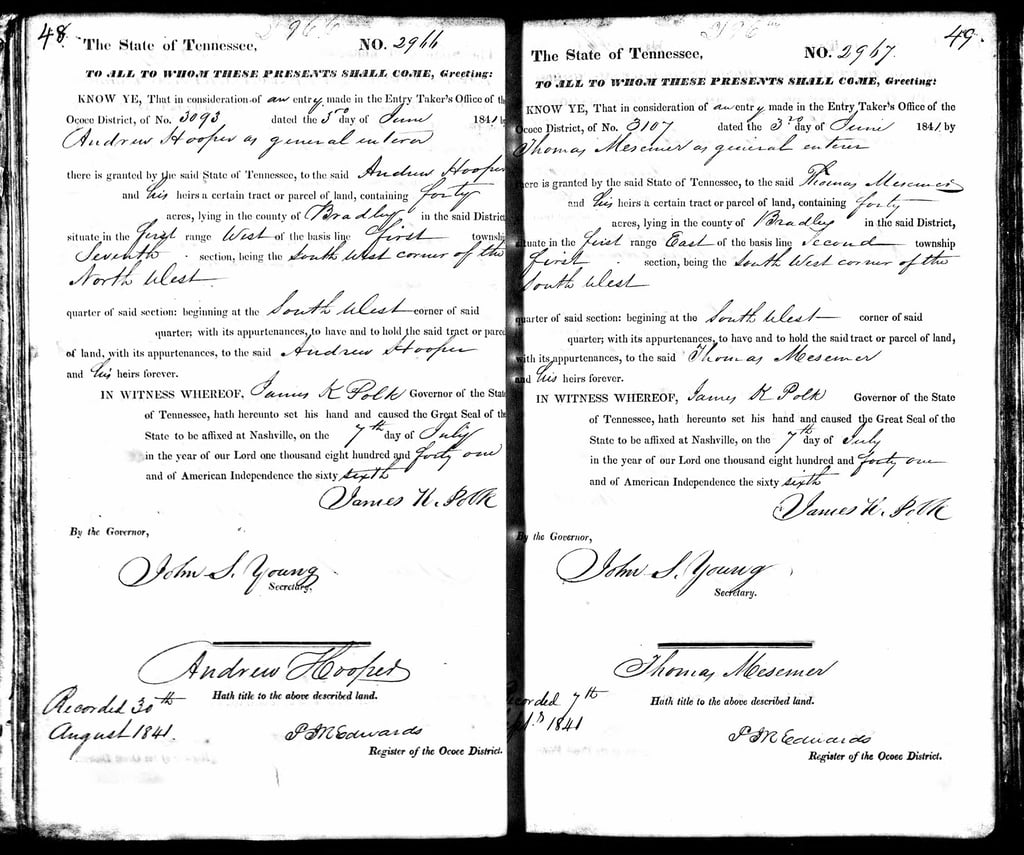 48.
The State of Tennessee, NO. 2966
TO ALL TO WHOM THESE PRESENTS SHALL COME, Greeting:
KNOW YE, That in consideration of an entry made in the Entry Taker's Office of th
Ococe District, of No. 3093 dated the 3rd day of June 1841 by
Andrew Hooper as general enterer
there is granted by the said State of Tennessee, to the said Andrew Hooper
and his heirs a certain tract or parcel of land, containing forty
acres, lying in the county of Bradley in the said Distric
situate in the first range West of the basis line first township
Seventh section, being the South West corner of the
North West
quarter of said section: beginning at the South West corner of said
quarter; with its appurtenances, to have and to hold the said tract or parce
of land, with its appurtenances, to the said Andrew Hooper
and his heirs forever.
IN WITNESS WHEREOF, James K Polk Governor of the Stat
of Tennessee, hath hereunto set his hand and caused the Great Seal of the
State to be affixed at Nashville, on the 7th day of July
in the year of our Lord one thousand eight hundred and forty one
and of American Independence the sixty sixth
James K. Polk
By the Governor,
John S. Young
Secretary.
Andrew Hooper
Hath title to the above described land.
Recorded 30th
August 1841.
P M Edwards
Register of the Ococe District.
49.
The State of Tennessee, NO. 2967.
TO ALL TO WHOM THESE PRESENTS SHALL COME, Greeting:
KNOW YE, That in consideration of an entry made in the Entry Taker's Office of the
Ococe District, of No. 3107 dated the 3rd day of June 1841 by
Thomas Mesemer as general enterer
there is granted by the said State of Tennessee, to the said Thomas Mesemer
and his heirs a certain tract or parcel of land, containing forty
acres, lying in the county of Bradley in the said District,
situate in the first range East of the basis line Second township
first section, being the South West corner of the
South West
quarter of said section: begining at the South West corner of said
quarter; with its appurtenances, to have and to hold the said tract or parcel of land,
with its appurtenances, to the said Thomas Mesemer
and his heirs forever.
IN WITNESS WHEREOF, James K Polk Governor of the State
of Tennessee, hath hereunto set his hand and caused the Great Seal of the
State to be affixed at Nashville, on the 7th day of July
in the year of our Lord one thousand eight hundred and forty one
and of American Independence the sixty sixth
James K. Polk
By the Governor,
John S. Young
Secretary.
Thomas Mesemer
Hath title to the above described land.
corded 7th
1841
P M Edwards
Register of the Ococe District.